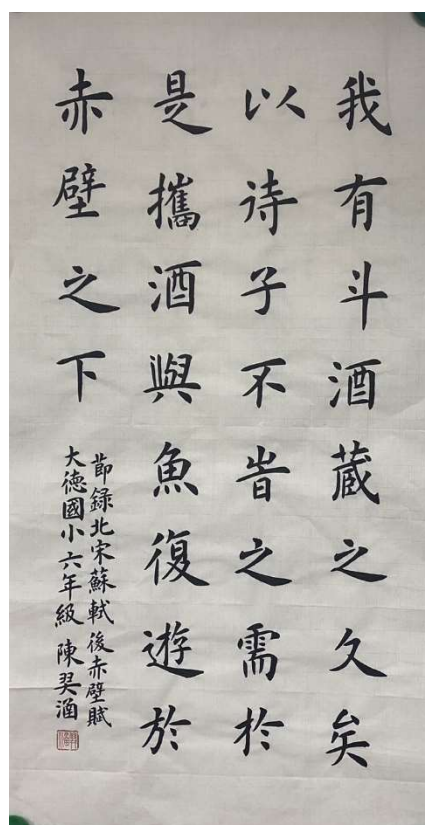 我有斗酒蔵之久矣
以待子不旹之需於
是攜酒與魚復遊於
赤壁之下
節錄北宋蘇軾後赤壁賦
大德國小六年級 陳羿涵